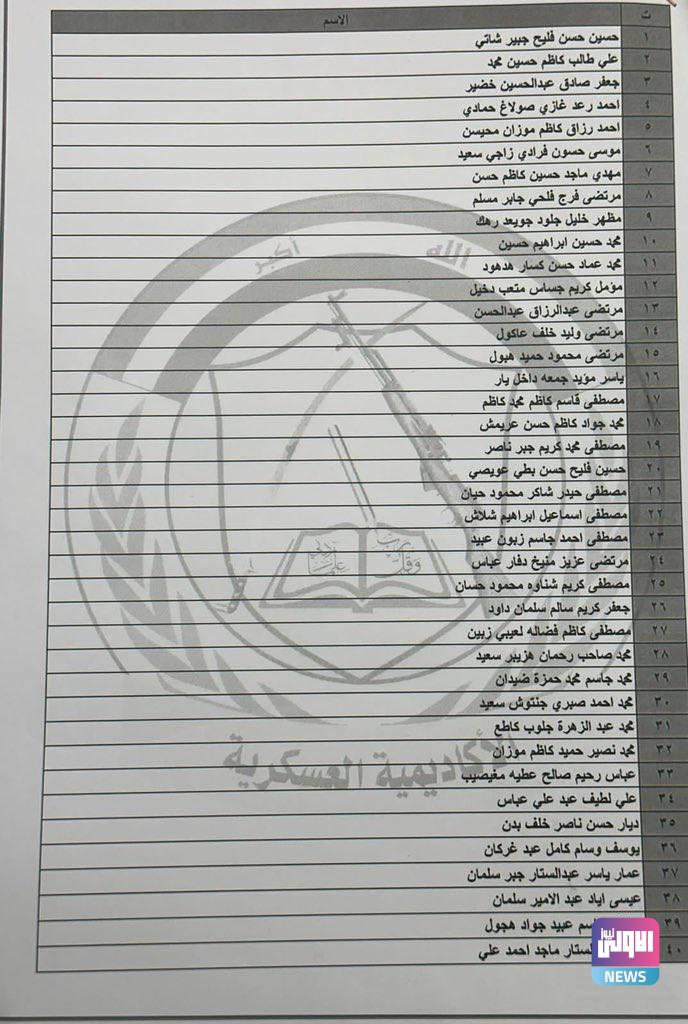 ت الاسم
١ حسين حسن فليح جبير شاتي
٢ علي طالب كاظم حسين محمد
٣ جعفر صادق عبدالحسين خضير
٤ احمد رعد غازي صولاغ حمادي
٥ احمد رزاق كاظم موزان محيسن
٦ موسى حسون فرادي زاجي سعيد
٧ مهدي ماجد حسين كاظم حسن
٨ مرتضى فرج فلحي جابر مسلم
٩ مظهر خليل جلود جويعد رهك
١٠ محمد حسين ابراهيم حسين
١١ محمد عماد حسن كسار هدهود
١٢ مؤمل كريم جساس متعب دخيل
١٣ مرتضى عبدالرزاق عبدالحسن
١٤ مرتضى وليد خلف عاكول
١٥ مرتضى محمود حميد هبول
١٦ ياسر مؤيد جمعه داخل يار
١٧ مصطفى قاسم كاظم محمد كاظم
١٨ محمد جواد كاظم حسن عريمش
١٩ مصطفى محمد كريم جبر ناصر
٢٠ حسين فليح حسن بطي عويصي
٢١ مصطفى حيدر شاكر محمود حيان
٢٢ مصطفى اسماعيل ابراهيم شلاش
٢٣ مصطفى احمد جاسم زبون عبيد
٢٤ مرتضى عزيز منيخ دفار عباس
٢٥ مصطفى كريم شناوه محمود حسان
٢٦ جعفر كريم سالم سلمان داود
٢٧ مصطفى كاظم فضاله لعيبي زبين
٢٨ محمد صاحب رحمان هزيبر سعيد
٢٩ محمد جاسم محمد حمزة ضيدان
٣٠ محمد احمد صبري جنتوش سعيد
٣١ محمد عبد الزهرة جلوب كاطع
٣٢ محمد نصير حميد كاظم موزان
٣٣ عباس رحيم صالح عطيه مغيصيب
٣٤ علي لطيف عبد علي عباس
٣٥ ديار حسن ناصر خلف بدن
٣٦ يوسف وسام كامل عبد غركان
٣٧ عمار ياسر عبدالستار جبر سلمان
٣٨ عيسى اياد عبد الامير سلمان
٣٩ عبيد جواد هجول
٤٠ ماجد احمد علي
الله اكبر
وقل رب زدني علما
الأكاديمية العسكرية
الاولى نيوز
NEWS